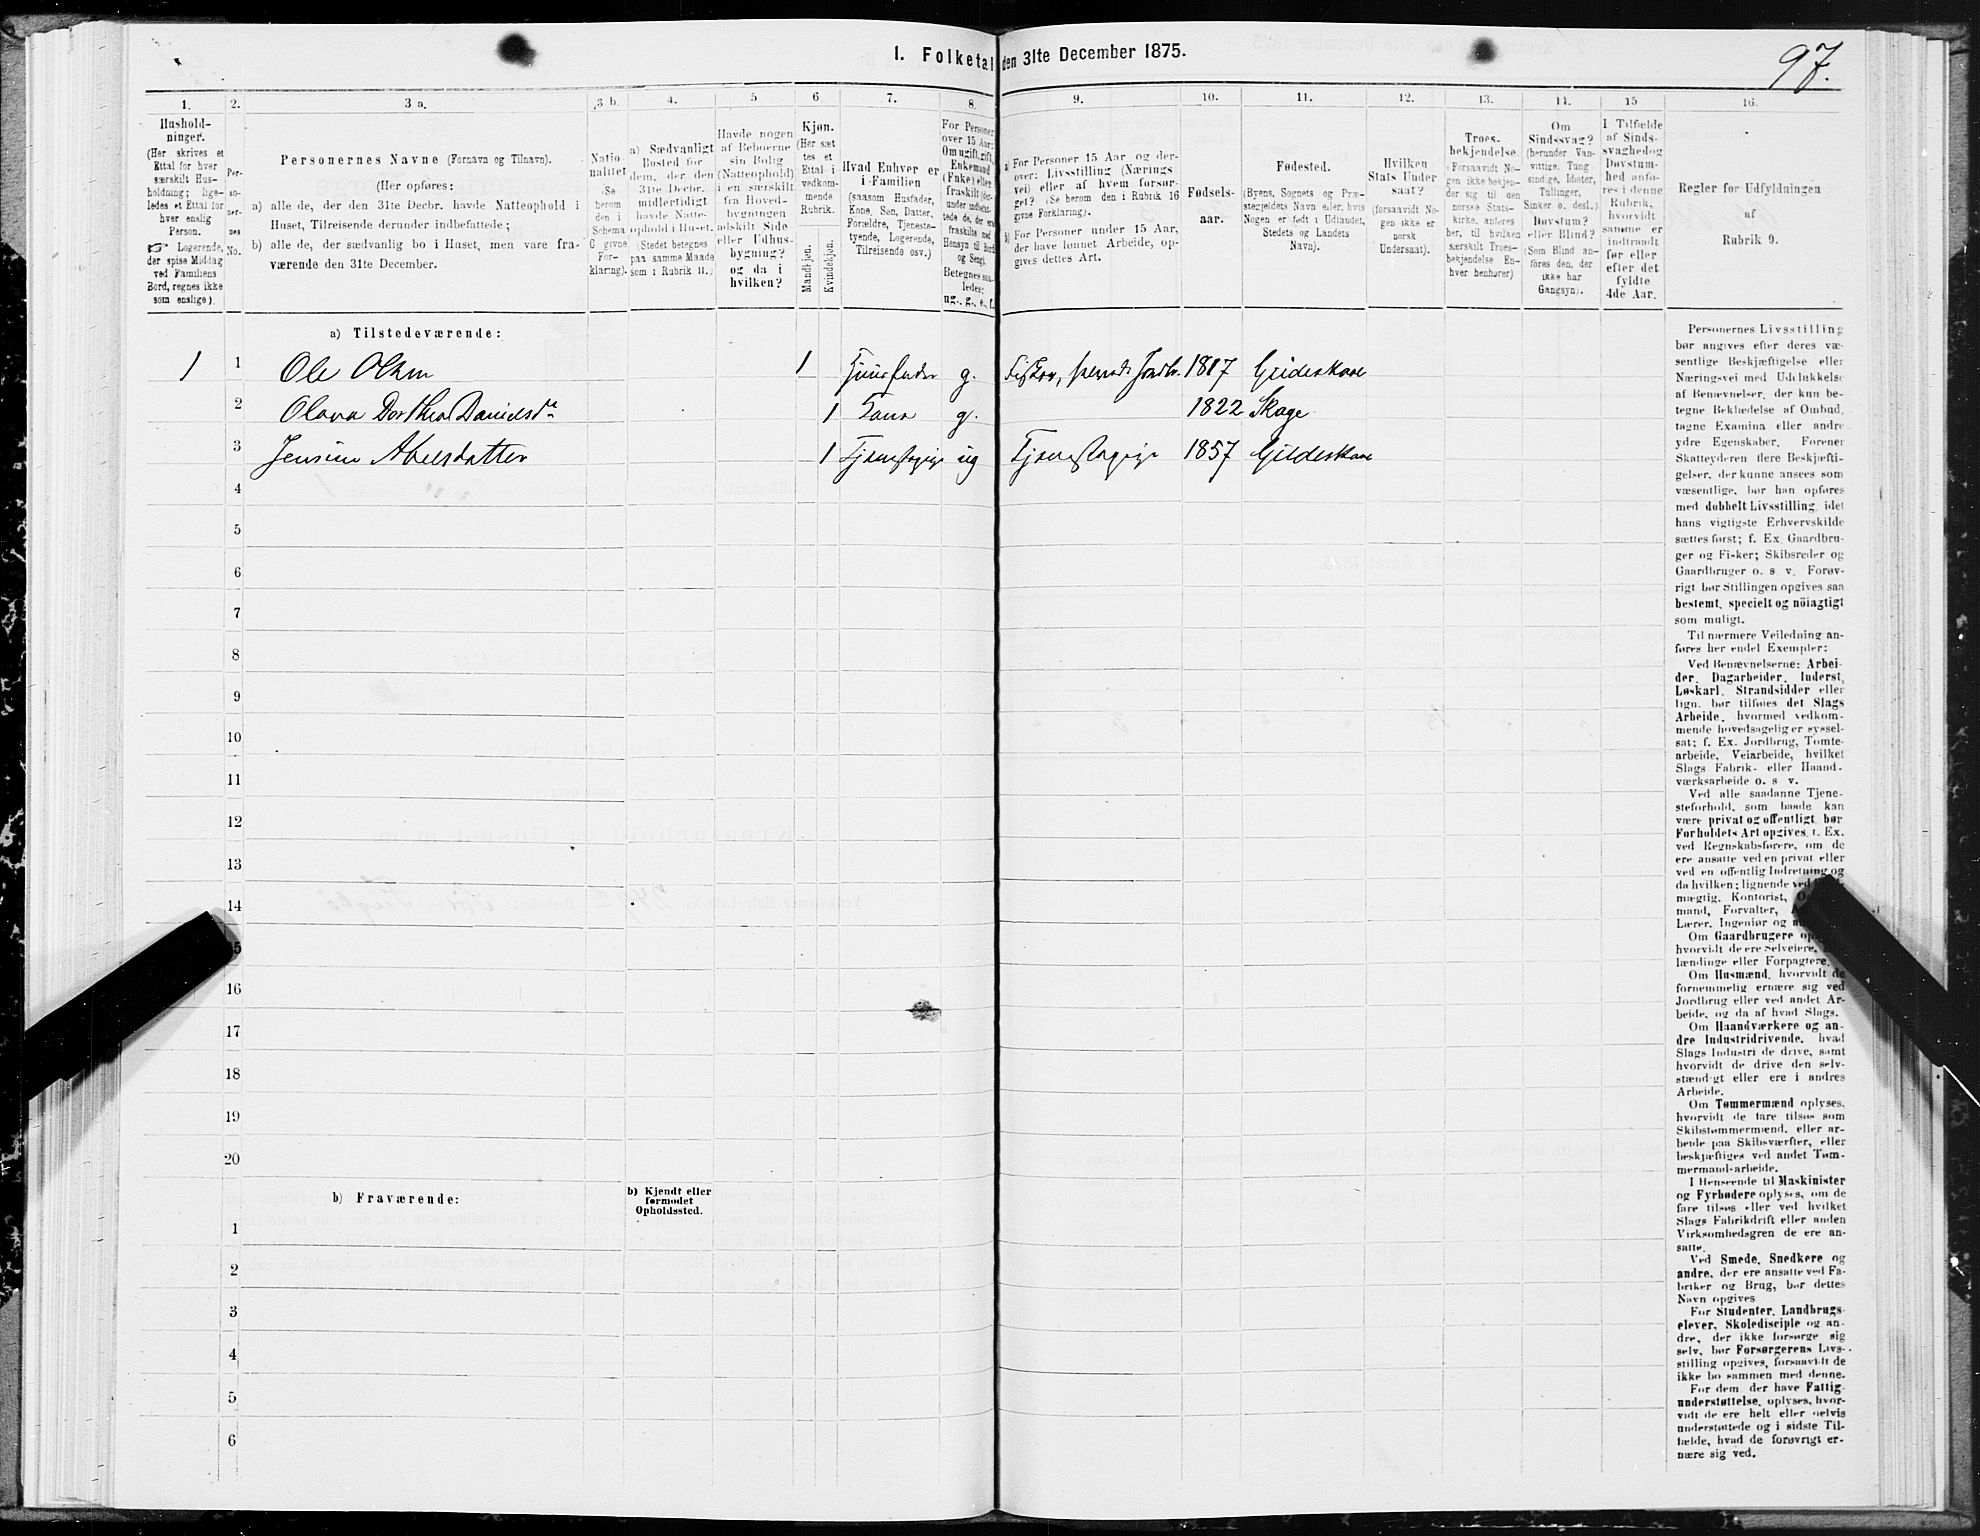 1. Folketal den 31te December 1875.
97.
1. 2. 3 a. 3 b. 4. 5 6 7. 8. 9. 10. 11. 12. 13. 14. 15 16.
Hushold-
ninger.
(Her skrives et
Ettal for hver
særskilt Hus-
holdning; lige-
ledes et Ettal for
hver enslig
Person.
☞ Logerende,
der spise Middag
ved Familiens
Bord, regnes ikke
som enslige).
Per-
so-
ner-
nes
No.
Personernes Navne (Fornavn og Tilnavn).
(Her opføres:
a) alle de, der den 31te Decbr. havde Natteophold i
Huset, Tilreisende derunder indbefattede;
b) alle de, der sædvanlig bo i Huset, men vare fra-
værende den 31te December.
Natio-
nalitet
(Se
herom
den i
Schema
C givne
For-
klaring).
a) Sædvanligt
Bosted for
dem, der den
31te Decbr.
midlertidigt
havde Natte-
ophold i Huset.
(Stedet betegnes
paa samme Maade
som i Rubrik 11.)
Havde nogen
af Beboerne
sin Bolig
(Natteophold)
i en særskilt
fra Hoved-
bygningen
adskilt Side
eller Udhus-
bygning?
og da i
hvilken?
Kjøn.
(Her sæt
tes et
Ettal i
vedkom-
mende
Rubrik.
Mandkjøn.
Kvindekjøn.
Hvad Enhver er
i Familien
(saasom Husfader,
Kone, Søn, Datter,
Forældre, Tjeneste-
tyende, Logerende,
Tilreisende osv.)
For Personer
over 15 Aar:
Om ugift, gift,
Enkemand
(Enke) eller
fraskilt (der-
under indbefat-
tede de, der ere
fraskilte med
Hensyn til Bord
og Seng).
Betegnes saa-
ledes:
ug., g., e., f.
a) For Personer 15 Aar og der-
over: Livsstilling (Nærings
vei) eller af hvem forsør-
get? (Se herom den i Rubrik 16
givne Forklaring).
b) For Personer under 15 Aar,
der have lønnet Arbeide, op-
gives dettes Art.
Fødsels-
aar.
Fødested.
(Byens, Sognets og Præ-
stegjeldets Navn eller, hvis
Nogen er født i Udlandet,
Stedets og Landets
Navn).
Hvilken
Stats Under
saat?
(forsaavidt No-
gen ikke er
norsk
Undersaat).
Troes-
bekjendelse.
(Forsaavidt No-
gen ikke bekjen-
der sig til den
norske Stats-
kirke, anføres
her, til hvilken
særskilt Troes-
bekjendelse En-
hver henhører)
Om
Sindssvag?
(herunder Van-
vittige, Tung-
sindige, Idioter,
Tullinger,
Sinker o. desl.)
Døvstum?
eller Blind?
(Som Blind an-
føres den, der
ikke har
Gangsyn).
I Tilfælde
af Sinds-
svaghed og
Døvstum-
hed anfø-
res i denne
Rubrik,
hvorvidt
samme er
indtraadt
før eller
efter det
fyldte
4de Aar.
Regler for Udfyldningen
af
Rubrik 9.
a) Tilstedeværende:
1 1 Ole Olsen 1 Huusfader g. 1817 Gildeskaal
2 Olava Dorthea Danielsdr 1 Kone g. 1822 Skage
3 Jensine Abelsdatter 1 Tjenestepige ug Tjenestepige 1857 Gildeskaal
4
5
6
7
8
9
10
11
12
13
14
15
16
17
18
19
20
b) Fraværende:
b) Kjendt eller
formodet
Opholdssted.
1
2
3
4
5
6
Personernes Livsstilling
bør angives efter deres væ-
sentlige Beskjæftigelse eller
Næringsvei med Udelukkelse
af Benævnelser, der kun be-
tegne Beklædelse af Ombud,
tagne Examina eller andre
ydre Egenskaber. Forener
Skatteyderen flere Beskjæfti-
gelser, der kunne ansees som
væsentlige, bør han opføres
med dobbelt Livsstilling, idet
hans vigtigste Erhvervskilde
sættes først; f. Ex. Gaardbru-
ger og Fisker; Skibsreder og
Gaardbruger o. s v. Forøv-
rigt bør Stillingen opgives saa
bestemt, specielt og nöiagtigt
som muligt.
Til nærmere Veiledning an-
føres her endel Exempler:
Ved Benævnelserne: Arbei-
der, Dagarbeider, Inderst,
Løskarl, Strandsidder eller
lign. bør tilføies det Slags
Arbeide, hvormed vedkom-
mende hovedsagelig er syssel-
sat; f. Ex. Jordbrug, Tomte-
arbeide, Veiarbeide, hvilket
Slags Fabrik- eller Haand-
værksarbeide o. s v.
Ved alle saadanne Tjene-
steforhold, som baade kan
være privat og offentligt, bør
Forholdets Art opgives, f. Ex.
ved Regnskabsførere, om de
ere ansatte ved en privat eller
ved en offentlig Indretning og
da hvilken; lignende ved
mægtig, Kontorist,
mand, Forvalter,
Lærer, Ingeniør og
Om Gaardbrugere
hvorvidt de ere Selveiere,
lændinge eller Forpagtere.
Om Husmænd, hvorvidt de
fornemmelig ernære sig ved
Jordbrug eller ved andet Ar-
beide, og da af hvad Slags.
Om Haandværkere og an-
dre Industridrivende, hvad
Slags Industri de drive, samt
hvorvidt de drive den selv-
stændigt eller ere i andres
Arbeide.
Om Tømmermænd oplyses,
hvorvidt de fare tilsøs som
Skibstømmermænd, eller ar-
beide paa Skibsværfter, eller
beskjæftiges ved andet Tøm-
mermandsarbeide.
I Henseende til Maskinister
og Fyrbødere oplyses, om de
fare tilsøs eller ved hvilket
Slags Fabrikdrift eller anden
Virksomhedsgren de ere an-
satte.
Ved Smede, Snedkere og
andre, der ere ansatte ved Fa-
briker og Brug, bør dettes
Navn opgives
For Studenter, Landbrugs-
elever, Skoledisciple og an-
dre, der ikke forsørge sig
selv, bør Forsørgerens Livs-
stilling opgives, forsaavidt de
ikke bo sammen med denne.
For dem, der have Fattig-
understøttelse, oplyses, hvor-
vidt de ere helt eller delvis
understøttede og i sidste Til-
fælde, hvad de forøvrigt er-
nære sig ved.